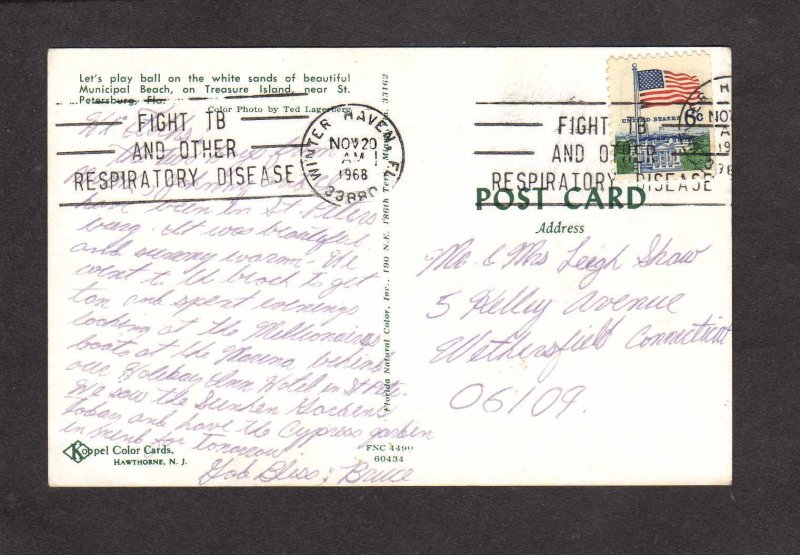 Let's play ball on the white sands of beautiful
Municipal Beach, on Treasure Island, near St.
Petersburg, Fla.
Color Photo by Ted Lagerberg
FIGHT TB
AND OTHER
RESPIRATORY DISEASE
WINTER HAVEN, FL
NOV 20
AM
1968
338
been in St. Peters
burg. It was beautiful
and sunny warm. We
went to the beach to get
tan and spent evenings
looking at the Millionaires
boats at the Marina behind
our Holiday Inn Hotel in St Pete.
We saw the Sunken Gardens
today and have the Cypress garden
in mind for tomorrow
God Bless: Bruce
Koppel Color Cards,
HAWTHORNE, N. J.
Florida Natural Color, Inc., 190 N.E. 186th Terr., Miami, 33162
FNC 4490
60434
UNITED STATES
6c
FIGHT TB
AND OTHER
RESPIRATORY DISEASE
NOV
POST CARD
Address
Mr. & Mrs Leigh Shaw
5 Kelley Avenue
Wethersfield Connecticut
06109.